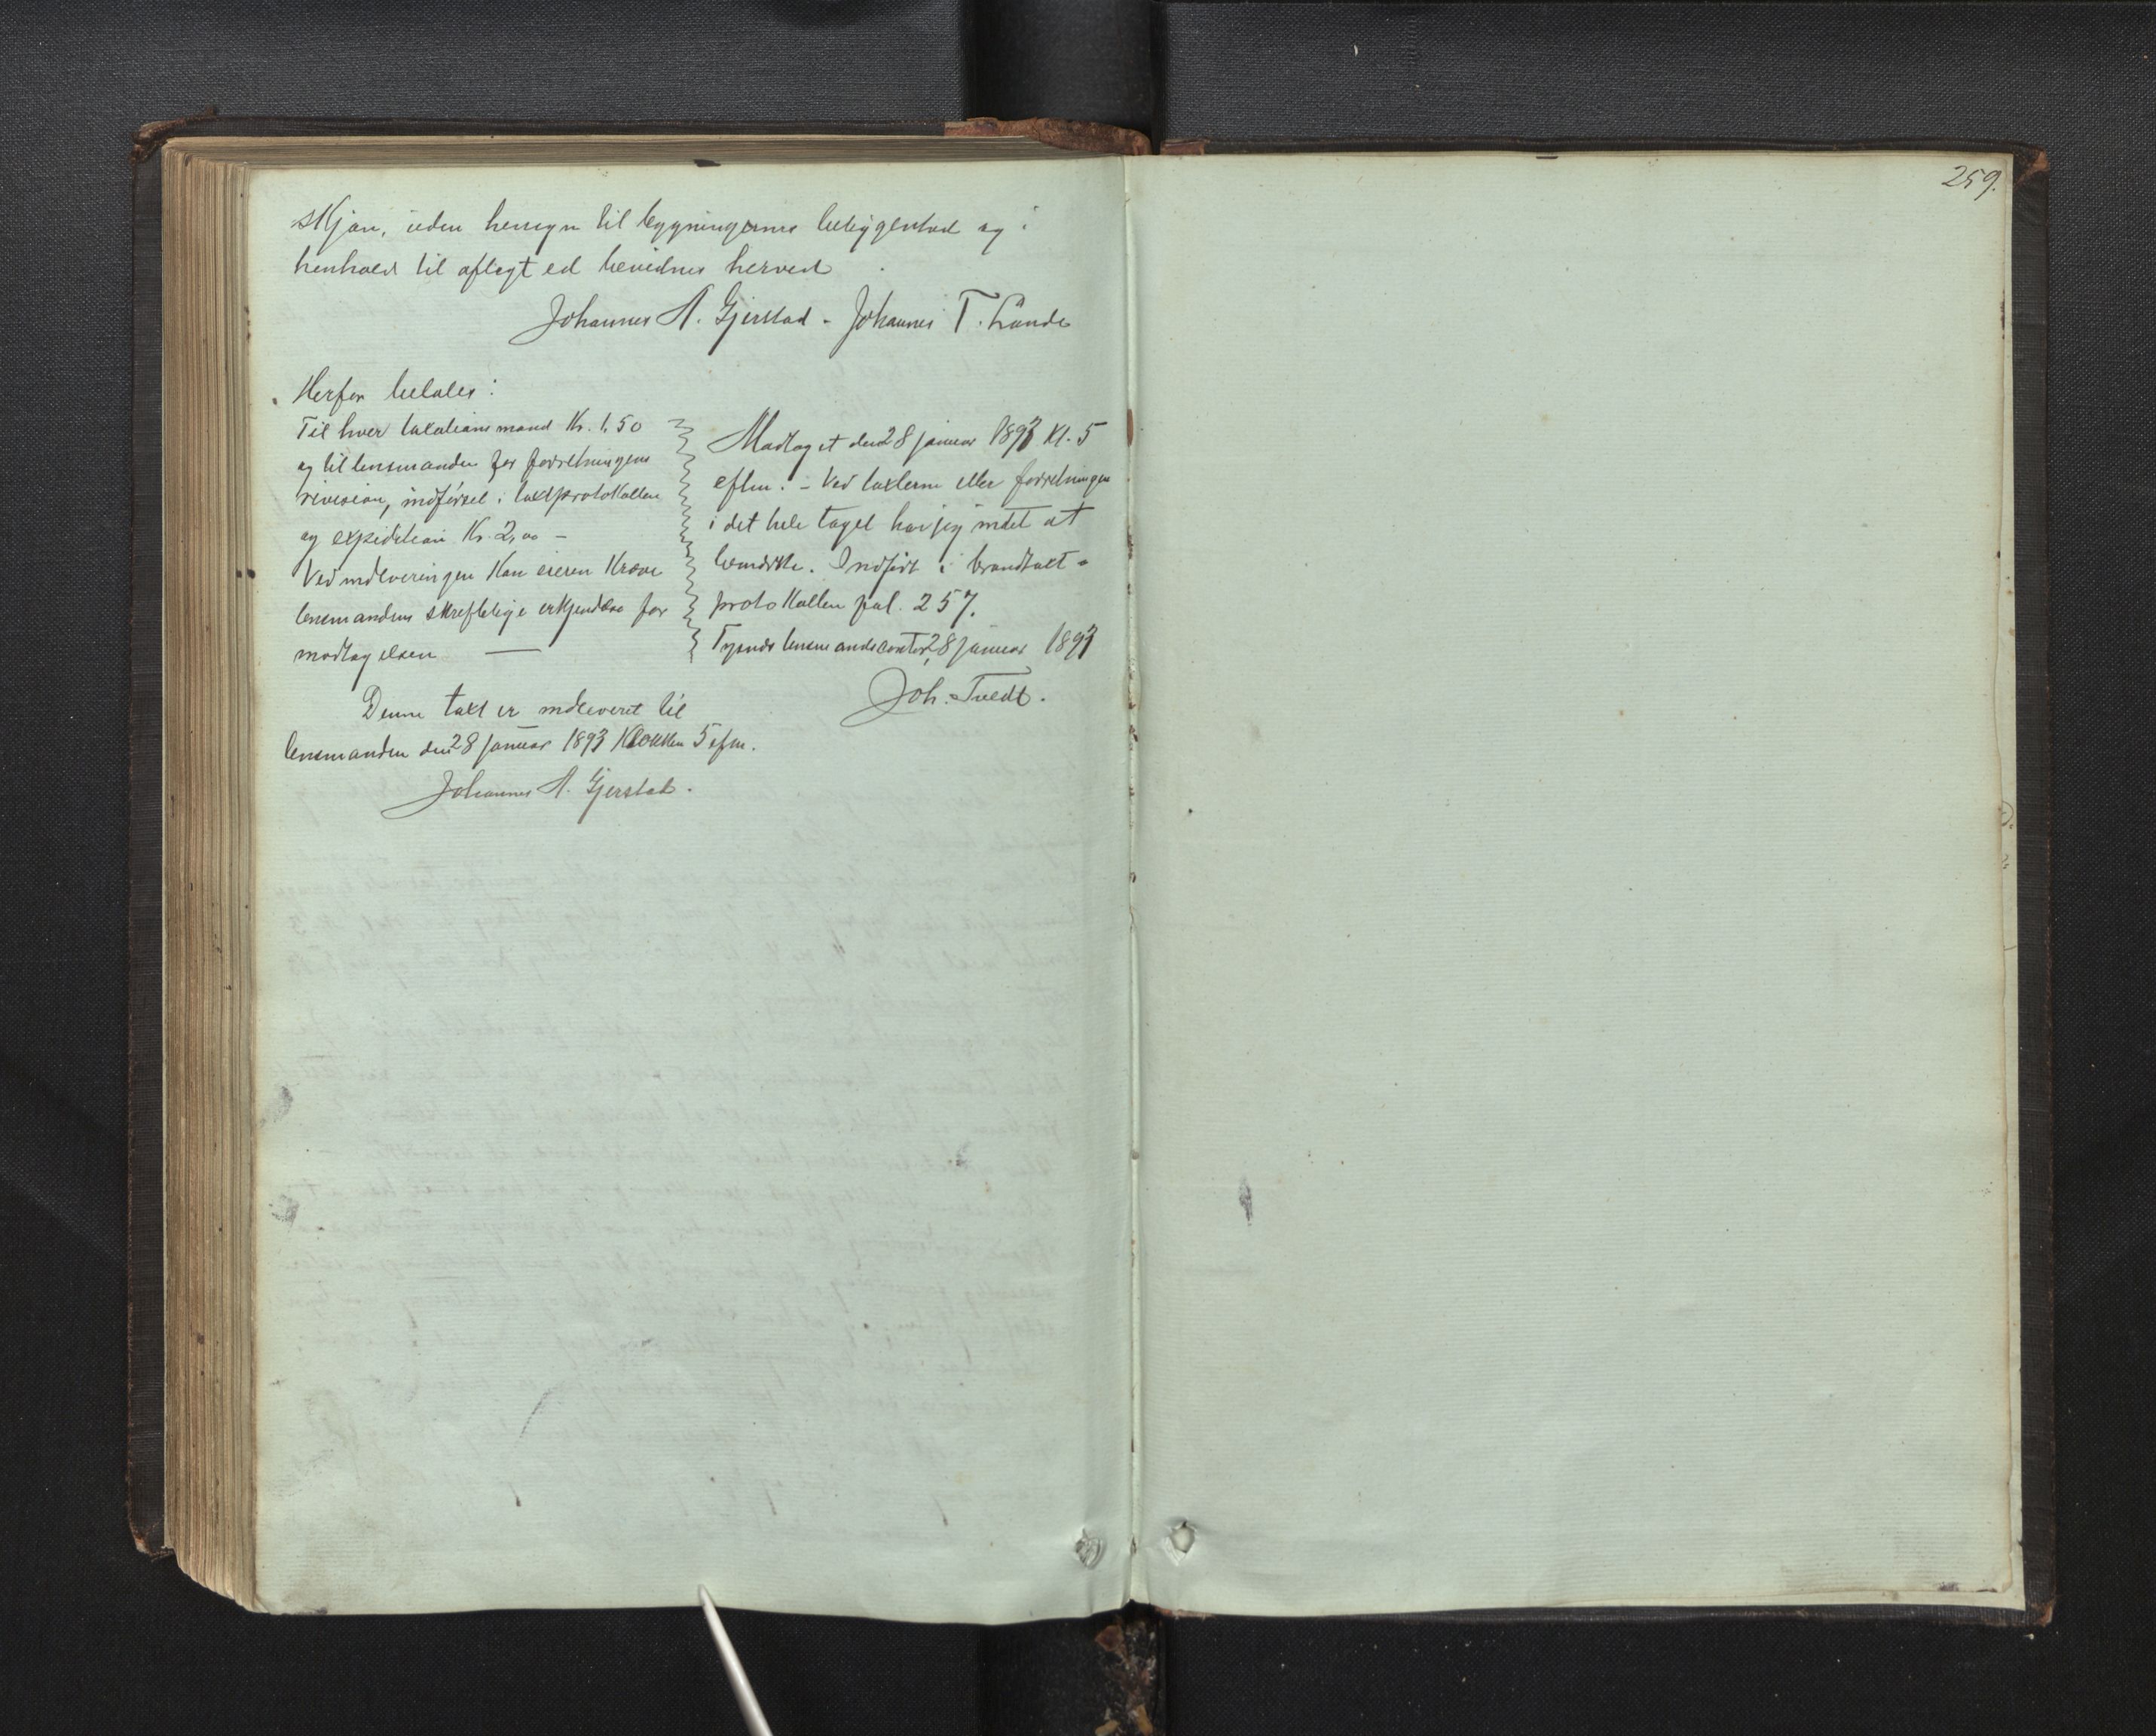 skjøn, uden hensyn til bygningernes beliggenhed og i
henhold til aflagt ed bevidnes herved
Johannes A. Gjerstad - Johannes T. Lunde
Herfor betales:
Til hver taxationsmand Kr. 1,50
og til lensmanden for forretningens
revision, indførsel i taxtprotokollen
og expedition Kr. 2,00 -
Ved indleveringen kan eieren kræve
lensmandens skreftelige erkjendelse for
modtagelsen —
Denne taxt er indleveret til
lensmanden den 28 januar 1893 Klokken 5 efm.
Johannes A. Gjerstad.
Modtaget den 28 januar 1893 Kl. 5
eftm. - Ved taxterne eller forretningen
i det hele taget har jeg intet at
bemærke. Indført i brandtaxt-
protokollen pal. 257.
Tysnæs lensmandscontor, 28 januar 1893
Joh. Tvedt.
259.